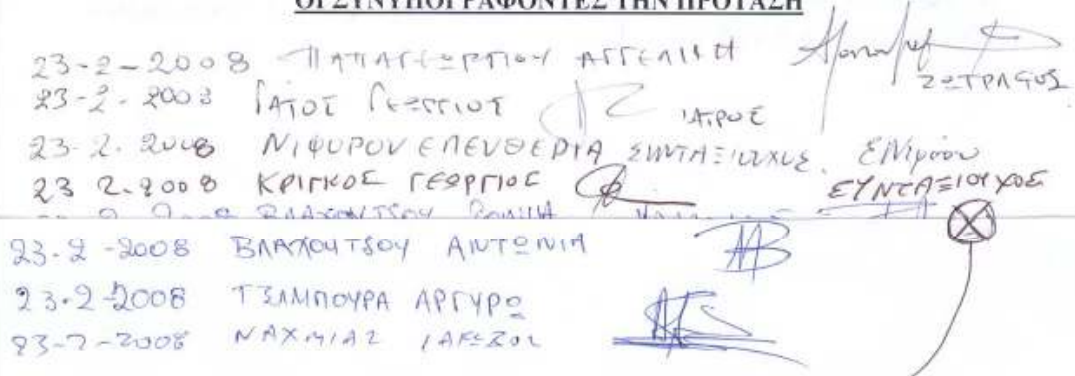 ΟΙ ΣΥΝΥΠΟΓΡΑΦΟΝΤΕΣ ΤΗΝ ΠΡΟΤΑΣΗ
23-2-2008 ΠΑΠΑΓΕΩΡΓΙΟΥ ΑΓΓΕΛΙΚΗ ΖΩΓΡΑΦΟΣ
23-2-2008 ΓΑΤΟΣ ΓΕΩΡΓΙΟΣ ΙΑΤΡΟΣ
23-2-2008 ΕΛΕΥΘΕΡΙΑ ΣΥΝΤΑΞΙΟΥΧΟΣ
23 2-2008 ΚΡΙΓΚΟΣ ΓΕΩΡΓΙΟΣ ΣΥΝΤΑΞΙΟΥΧΟΣ
23-2-2008 ΒΛΑΧΟΥΤΣΟΥ ΑΝΤΩΝΙΑ
23-2-2008 ΤΣΑΜΠΟΥΡΑ ΑΡΓΥΡΩ
23-2-2008 ΝΑΧΜΙΑΣ ΙΑΚΩΒΟΣ